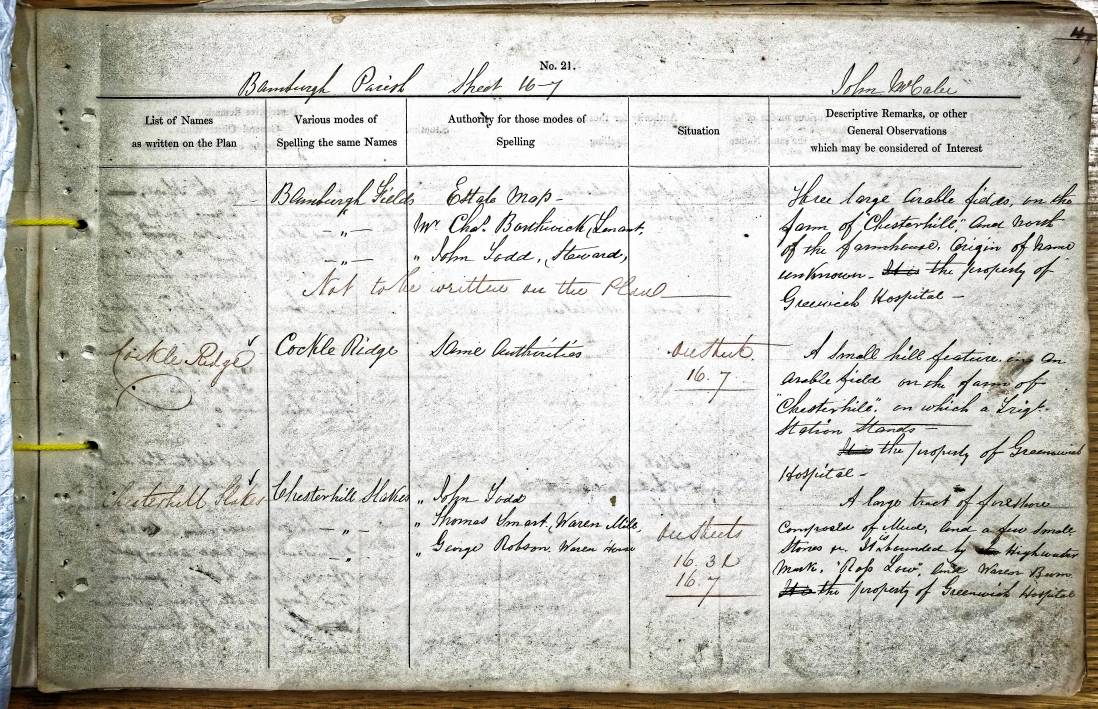 No. 21.
Bamburgh Parish Sheet 16-7 John McCabe
List of Names
as written on the Plan
Various modes of
Spelling the same Names
Authority for those modes of
Spelling
Situation
Descriptive Remarks, or other
General Observations
which may be considered of Interest
Bamburgh Fields
-"-
-"-
Estate Map -
Mr. Chas. Borthwick, Tenant,
" John Todd, Steward,
Three large arable fields, on the
farm of "Chesterhill", and North
of the farmhouse. Origin of Name
unknown - It is the property of
Greenwich Hospital -
Not to be written on the Plan
Cockle Ridge
Cockle Ridge
Same Authorities
On Sheet
16. 7
A Small hill feature in an
arable field on the farm of
"Chesterhill", on which a Trigl.
Station Stands -
It is the property of Greenwich
Hospital -
Chesterhill Slakes
Chesterhill Slakes
-"-
"
" John Todd
" Thomas Smart, Waren Mills,
" George Robson, Waren House
On Sheets
16. 3
16. 7
A large tract of foreshore
Composed of Mud, and a few Small
Stones &c. It is bounded by High water
Mark, "Ross Low", and Waren Burn
It is the property of Greenwich Hospital